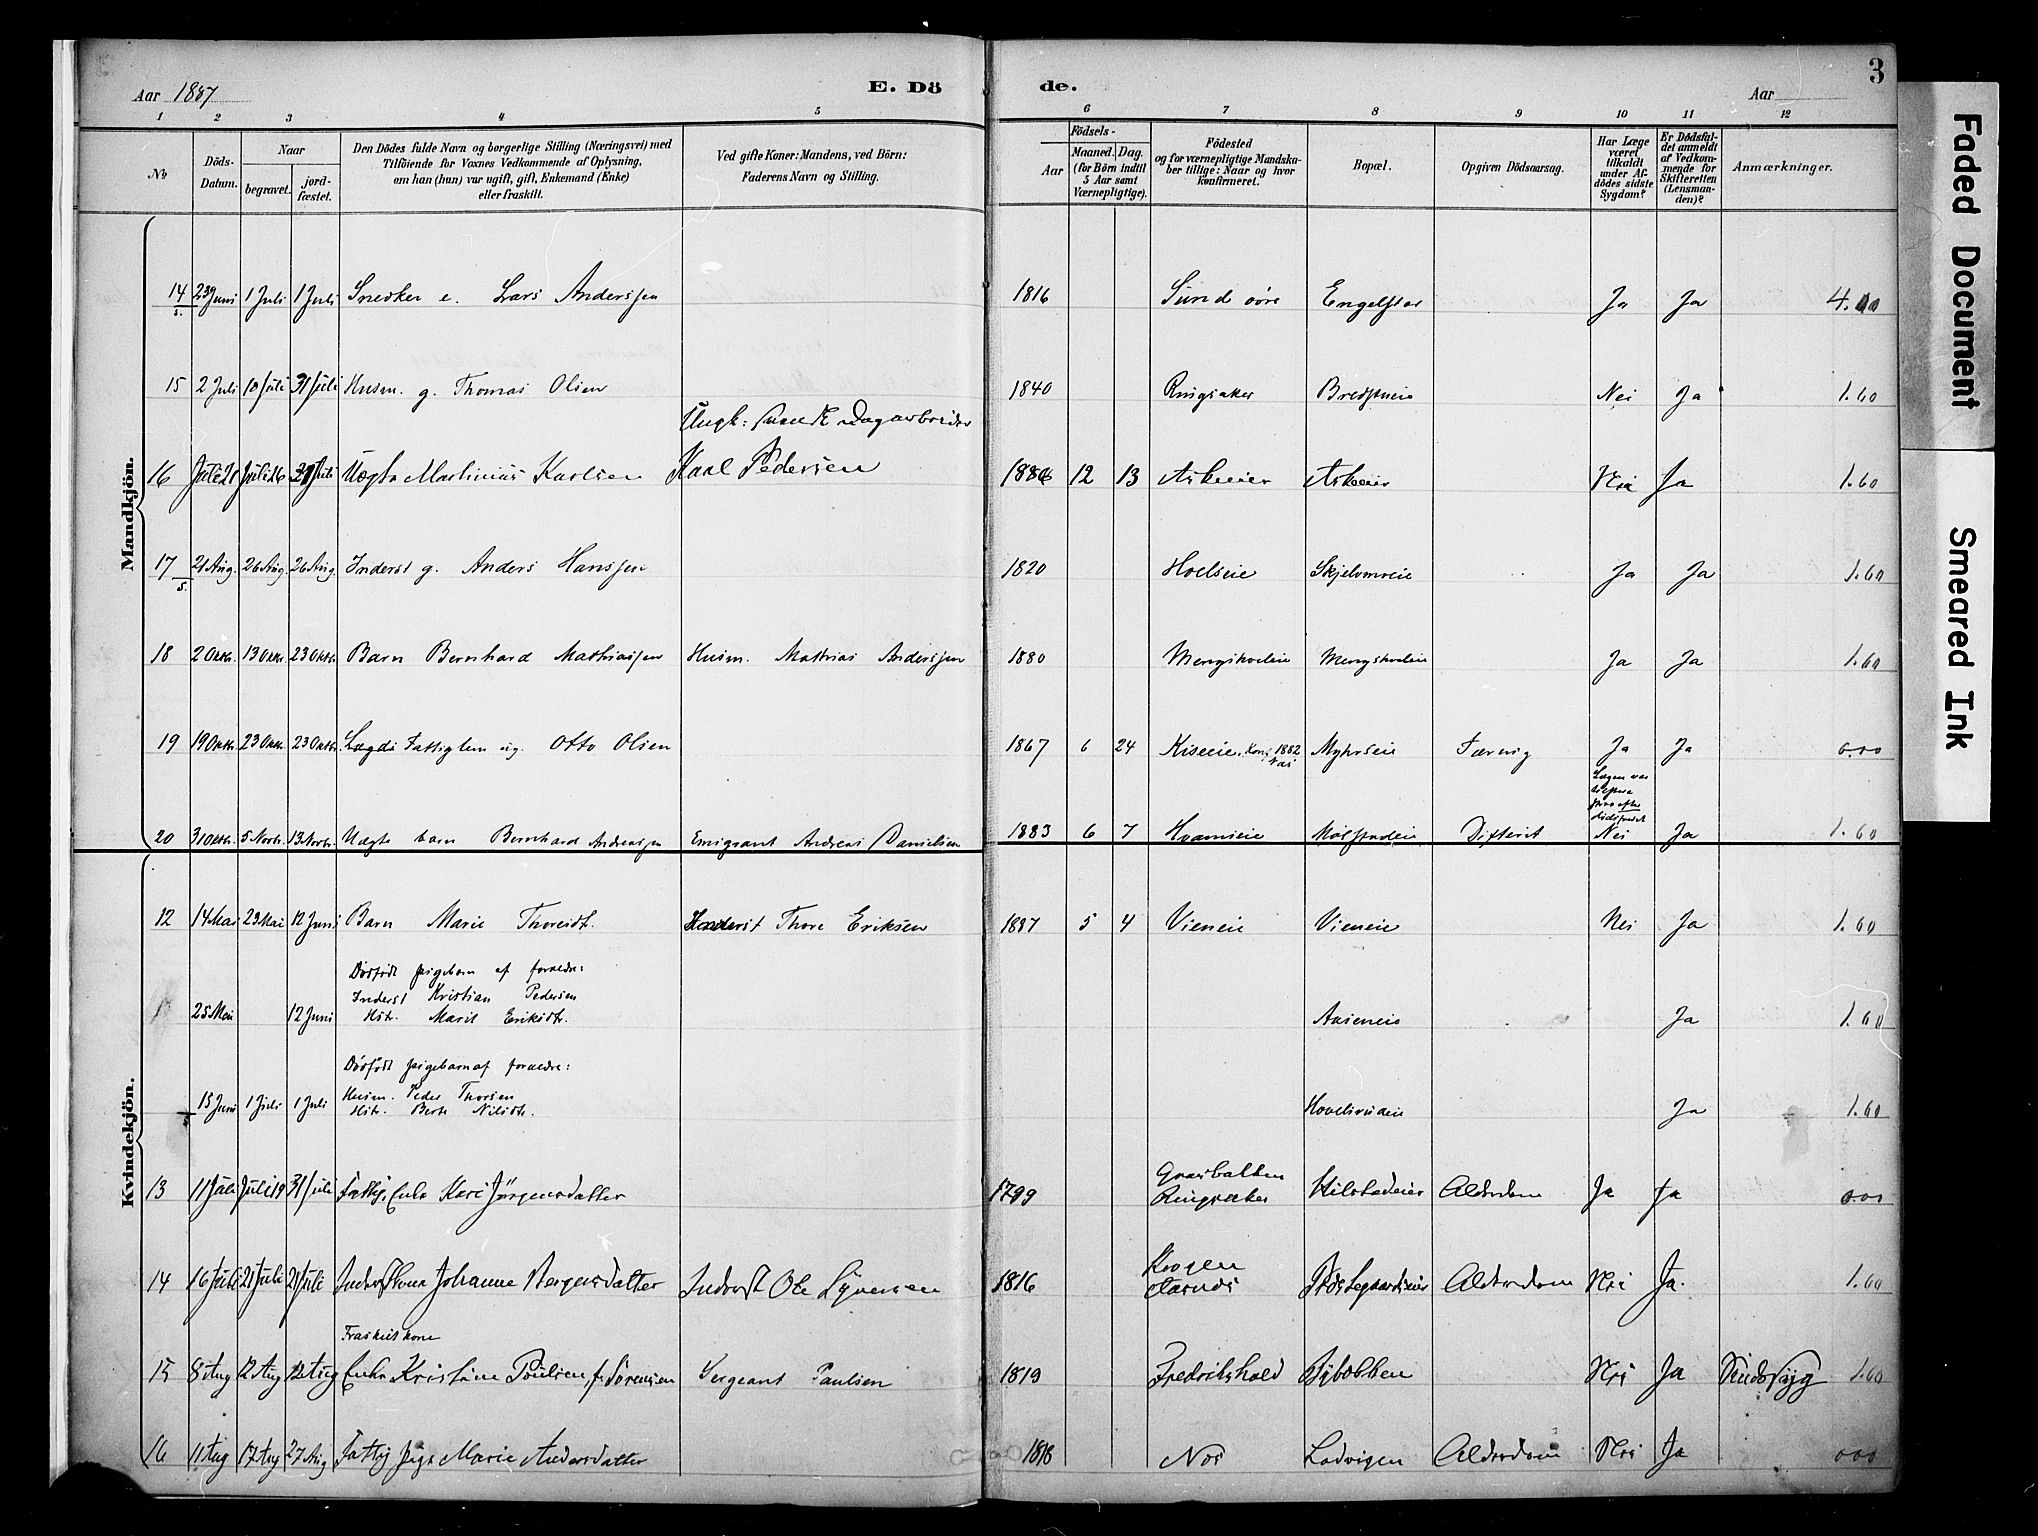 Aar 1887
E. Dö
de.
Aar
3
1 2 3 4 5 6 7 8 9 10 11 12
No
Döds-Datum.
Naar
begravet.
jord-fæstet.
Den Dödes fulde Navn og borgerlige Stilling (Næringsvei) med
Tilföiende for Voxnes Vedkommende af Oplysning,
om han (hun) var ugift, gift, Enkemand (Enke)
eller fraskilt.
Ved gifte Koner: Mandens, ved Börn:
Faderens Navn og Stilling.
Födsels-
Aar
Maaned. Dag.
(for Börn indtil
5 Aar samt
Værnepligtige).
Födested
og for værnepligtige Mandska-
ber tillige: Naar og hvor
konfirmeret.
Bopæl.
Opgiven Dödsaarsag.
Har Læge
været
tilkaldt
under Af-
dödes sidste
Sygdom?
Er Dödsfal-
det anmeldt
af Vedkom-
mende for
Skifteretten
(Lensman-
den)?
Anmærkninger.
Mandkjön.
14 23 Juni 1 Juli 1 Juli Snedker e. Lars Anderssen 1816 Engelstad Ja Ja 4.00
15 2 Juli 10 Juli 31 Juli Husm. g. Thomas Olsen 1840 Ringsaker Nei Ja 1.60
16 Juli 21 Juli 26 31 Juli Ægte Martinius Karlsen Karl Pedersen 12 13 Askeeier Askeeier Nei Ja 1.60
17 21 Aug. 26 Aug. 26 Aug. Inderst g. Anders Hanssen 1820 Hoelseie Ja Ja 1.60
18 2 Oktbr. 13 Oktbr. 23 Oktbr. Barn Bernhard Mathiassen Husm. Mathias Anderssen 1880 Mengshoeleie Mengshoeleie Ja Ja 1.60
19 19 Oktbr. 23 Oktbr. 23 Oktbr. Lægds Fattiglem ug. Otto Olsen 1867 6 24 Kiseeie. Konf. 1882 Nes Myhrseie Tæring Ja Ja 0.00
20 31 Oktbr. 5 Novbr. 13 Novbr. Ægte barn Bernhard Andreassen Emigrant Andreas Danielsen 1883 6 7 Hvamseie Difterit Nei Ja 1.60
Kvindekjön.
12 14 Mai 29 Mai 12 Juni Barn Marie Thoresdt. Inderst Thore Eriksen 1887 5 4 Vieneie Vieneie Nei Ja 1.60
Dødfødt pigebarn af forældre:
Inderst Kristian Pedersen
25 Mai 12 Juni Hstr. Marit Eriksdtr. Aaseneie Ja 1.60
Dødfødt pigebarn af forældre:
Husm. Peder Thorsen
15 Juni 1 Juli 1 Juli Hstr. Berte Nilsdtr. Ja 1.60
13 11 Juli Juli 19 31 Juli Fattig. Enke Kari Jörgensdatter 1799 Ringsaker Alderdom Ja Ja 0.00
14 16 Juli 21 Juli 21 Juli Inderst Kone Johanne Inderst Ole Syversen 1816 Alderdom Nei Ja. 1.60
Fraskilt kone
15 8 Aug 12 Aug 12 Aug Enke Kristine Poulsen f. Sörensen Sergeant Paulsen 1819 Fredrikshald Nei Ja Sindssyg 1.60
16 11 Aug 17 Aug 27 Aug Fattig Pige Marie Andersdatter 1818 Nes Alderdom Nei Ja 000
Faded Document
Smeared Ink